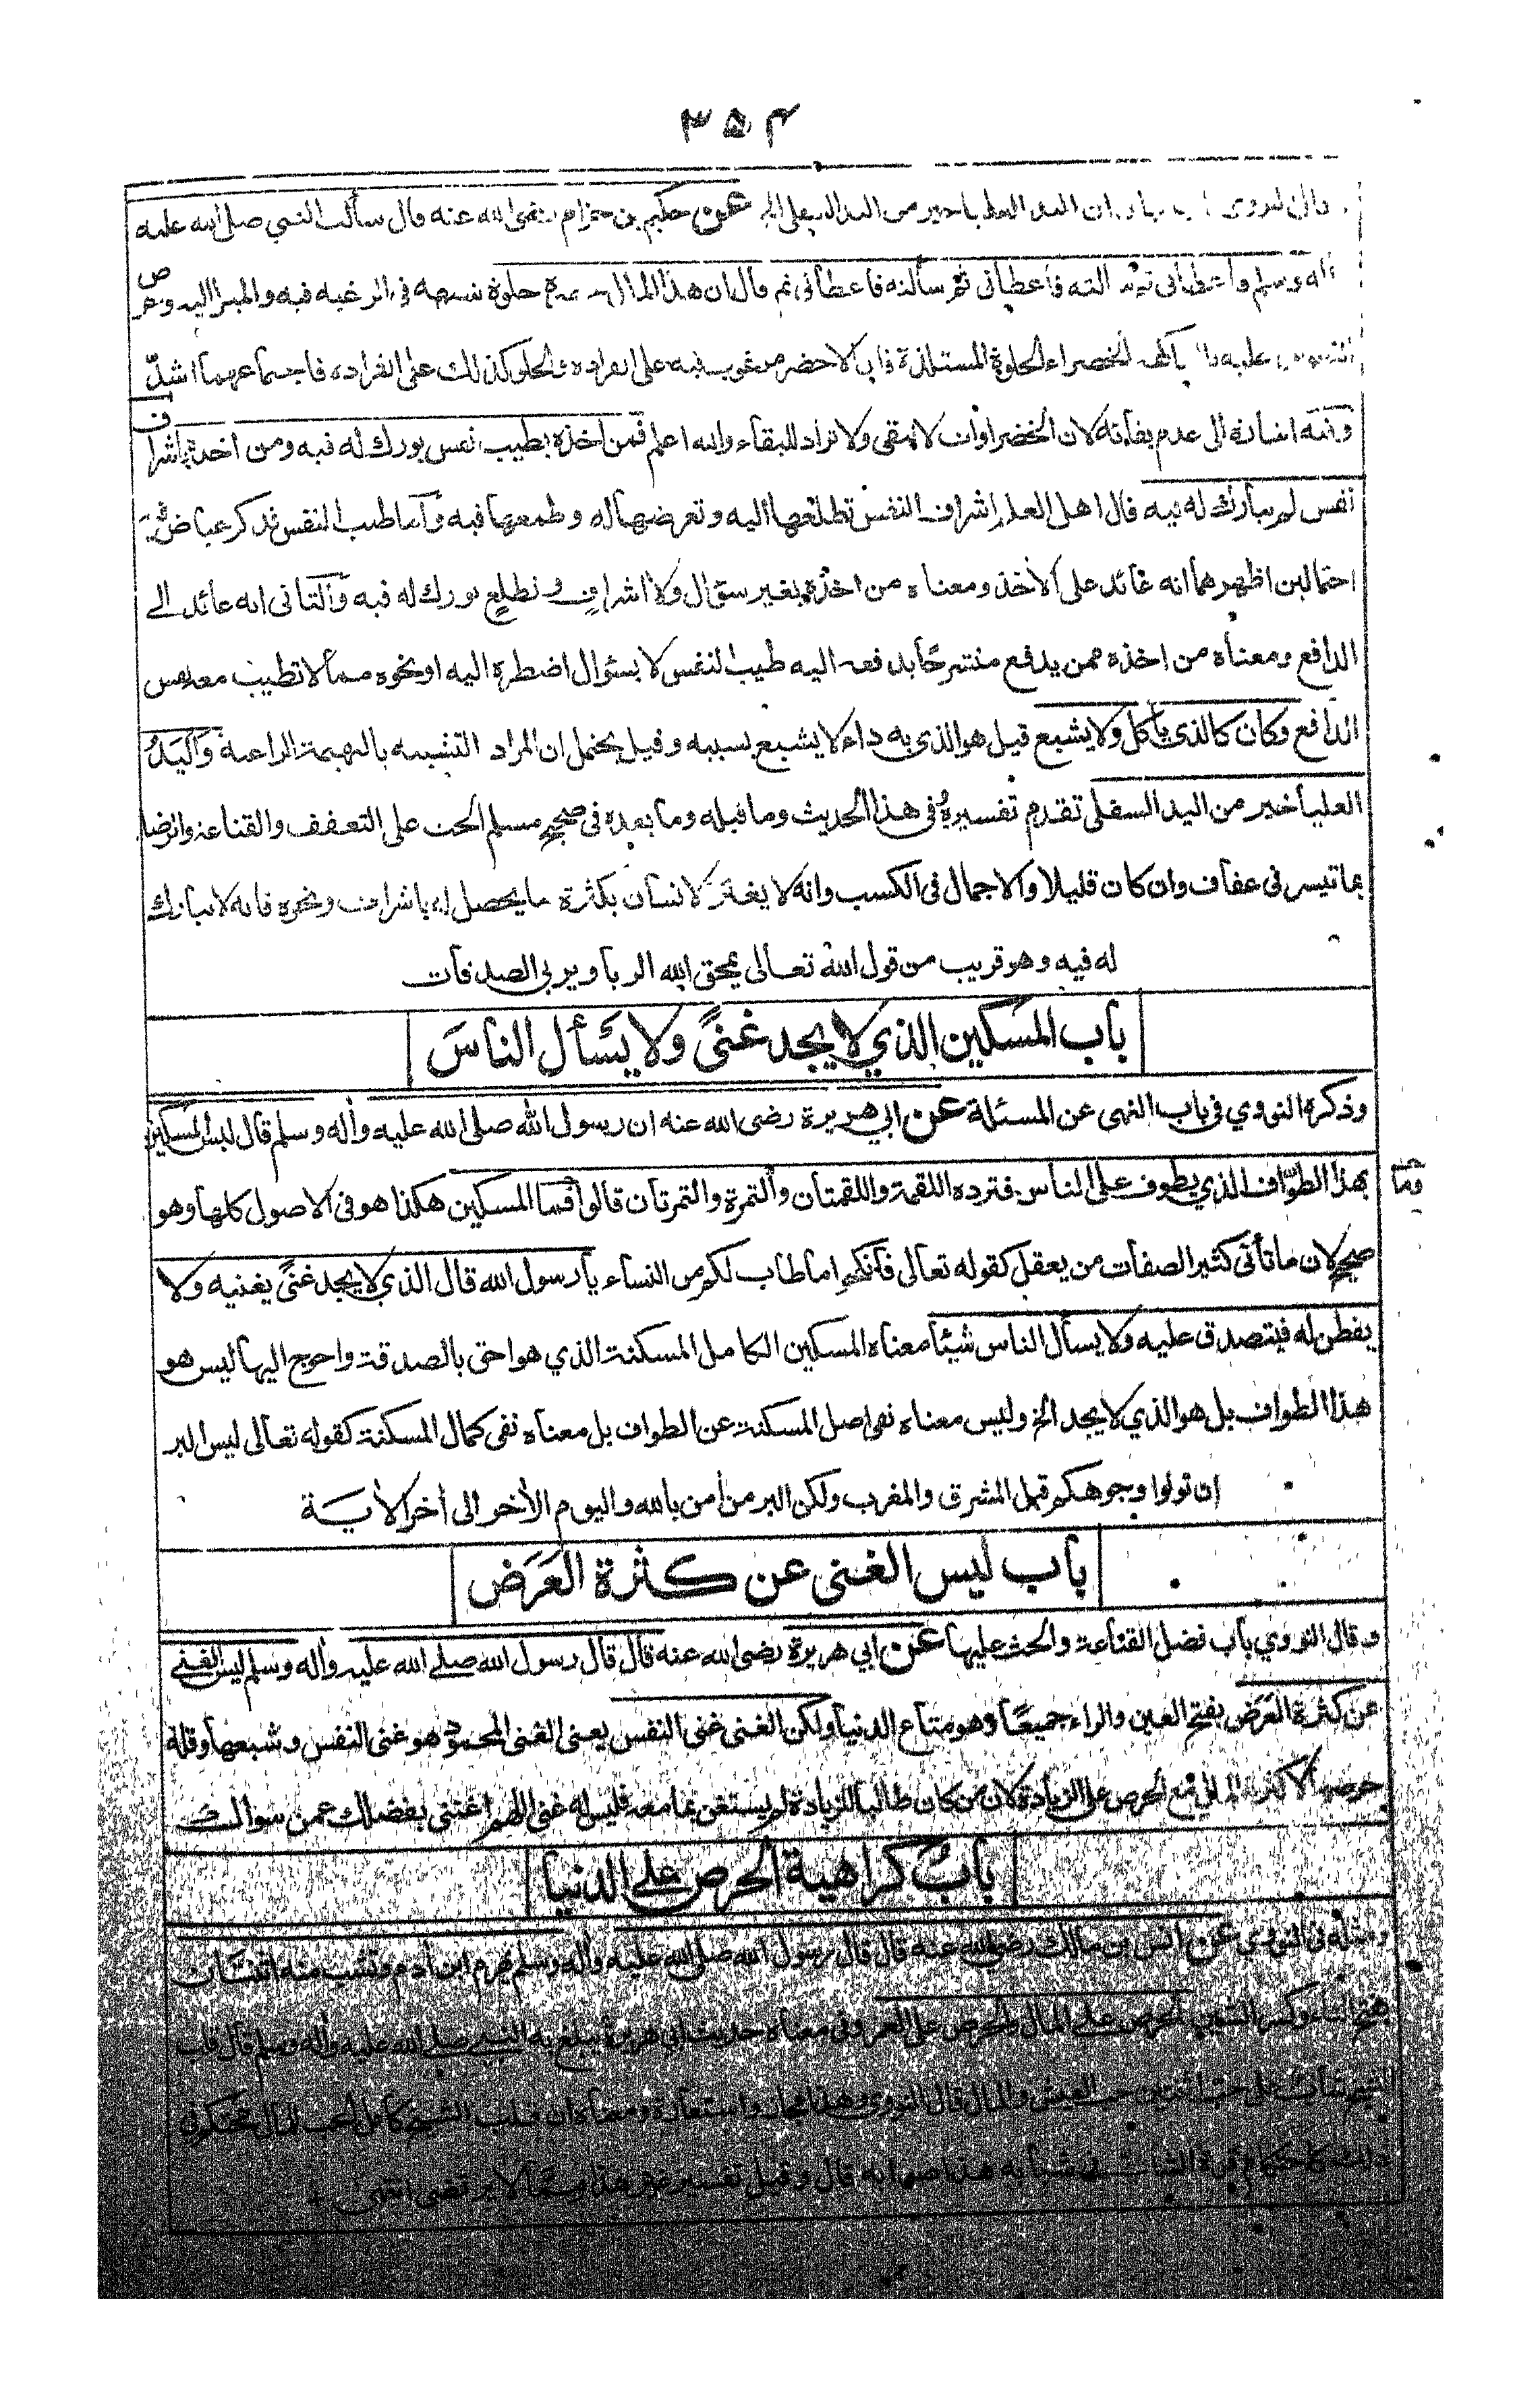 ٣٥٤
عن حكيم بن حزام رضى الله عنه قال سألت النبي صلى الله عليه
واله وسلم فأعطانى ثم سألته فأعطانى ثم سألته فاعطانى ثم قال ان هذا المال خضرة حلوة شبهه في الرغبة فيه والميل اليه وحرص
النفوس عليه بالفاكهة الخضراء الحلوة المستلذة فان الاخضر مرغوب فيه على انفراده والحلو كذلك على انفراده فاجتماعهما اشدّ
وفيه اشارة الى عدم بقائه لان الخضراوات لا تبقى ولا تراد للبقاء والله اعلم فمن اخذه بطيب نفس بورك له فيه ومن اخذه بإشراف
نفس لم يبارك له فيه قال اهل العلم إشراف النفس تطلعها اليه وتعرضها له وطمعها فيه وأما طيب النفس فذكر عياض فيه
احتمالين اظهرهما انه عائد على الأخذ ومعناه من اخذه بغير سؤال ولا اشراف و تطلع بورك له فيه والثانى انه عائد الى
الدافع ومعناه من اخذه ممن يدفع منشرحًا بدفعه اليه طيب النفس لا بسؤال اضطره اليه او نحوه مما لا تطيب معه نفس
الدافع وكان كالذي يأكل ولا يشبع قيل هو الذي به داء لا يشبع بسببه وقيل يحتمل ان المراد التشبيه بالبهيمة الراعية واليدُ
العليا خير من اليد السفلى تقدم تفسيره وفى هذا الحديث وما قبله وما بعده فى صحيح مسلم الحث على التعفف والقناعة والرضا
بما تيسر فى عفاف وان كان قليلا والاجمال فى الكسب وانه لا يغتر الانسان بكثرة ما يحصل له باشراف ونحوه فانه لا يبارك
له فيه وهو قريب من قول الله تعالى يمحق الله الربا ويربى الصدقات
باب المسكين الذي لا يجد غنًى ولا يَسأل الناسَ
وذكره النووي فى باب النهى عن المسئلة عن ابي هريرة رضى الله عنه ان رسول الله صلى الله عليه واله وسلم قال ليس المسكين
بهذا الطوّاف الذي يطوف على الناس فترده اللقمة واللقمتان والتمرة والتمرتان قالوا فما المسكين هكذا هو فى الاصول كلها وهو
وما
صحيح لان ما تأتى كثير الصفات من يعقل كقوله تعالى فانكحوا ما طاب لكم من النساء يا رسول الله قال الذي لا يجد غنًى يغنيه ولا
يفطن له فيتصدق عليه ولا يسأل الناس شيئا معناه المسكين الكامل المسكنة الذي هو احق بالصدقة واحوج اليها ليس هو
هذا الطواف بل هو الذي لا يجد الخ وليس معناه نفى اصل المسكنة عن الطواف بل معناه نفى كمال المسكنة كقوله تعالى ليس البر
ان تولوا وجوهكم قبل المشرق والمغرب ولكن البر من أمن بالله واليوم الأخر الى أخر الأيـــة
باب ليس الغنى عن كثرة العَرَض
وقال النووي باب فضل القناعة والحث عليها عن ابي هريرة رضى الله عنه قال قال رسول الله صلى الله عليه واله وسلم ليس الغنى
عن كثرة العَرَض بفتح العين والراء جميعًا وهو متاع الدنيا ولكن الغنى غنى النفس يعنى الغنى المحمود هو غنى النفس وشبعها وقلة
حرصها لا كثرة المال مع الحرص على الزيادة لان من كان طالبا للزيادة لم يستغن بما معه فليس له غنى اللهم اغننى بفضلك عمن سواك
باب كراهية الحرص على الدنيا
ومثله فى النووي عن انس بن مالك رضى الله عنه قال قال رسول الله صلى الله عليه واله وسلم يهرم ابن أدم وتشب منه اثنتان
بفتح التاء وكسر الشين الحرص على المال والحرص على العمر وفى معناه حديث ابي هريرة يبلغ به النبي صلى الله عليه واله وسلم قال قلب
الشيخ شاب على حب اثنتين حب العيش والمال قال النووي وهذا مجاز واستعارة ومعناه ان قلب الشيخ كامل الحب للمال محتكم فى
ذلك كاحتكام قوة الشاب فى شبابه هذا صوابه قال وقيل تفسير غير هذا مما لا يرتضى انتهى